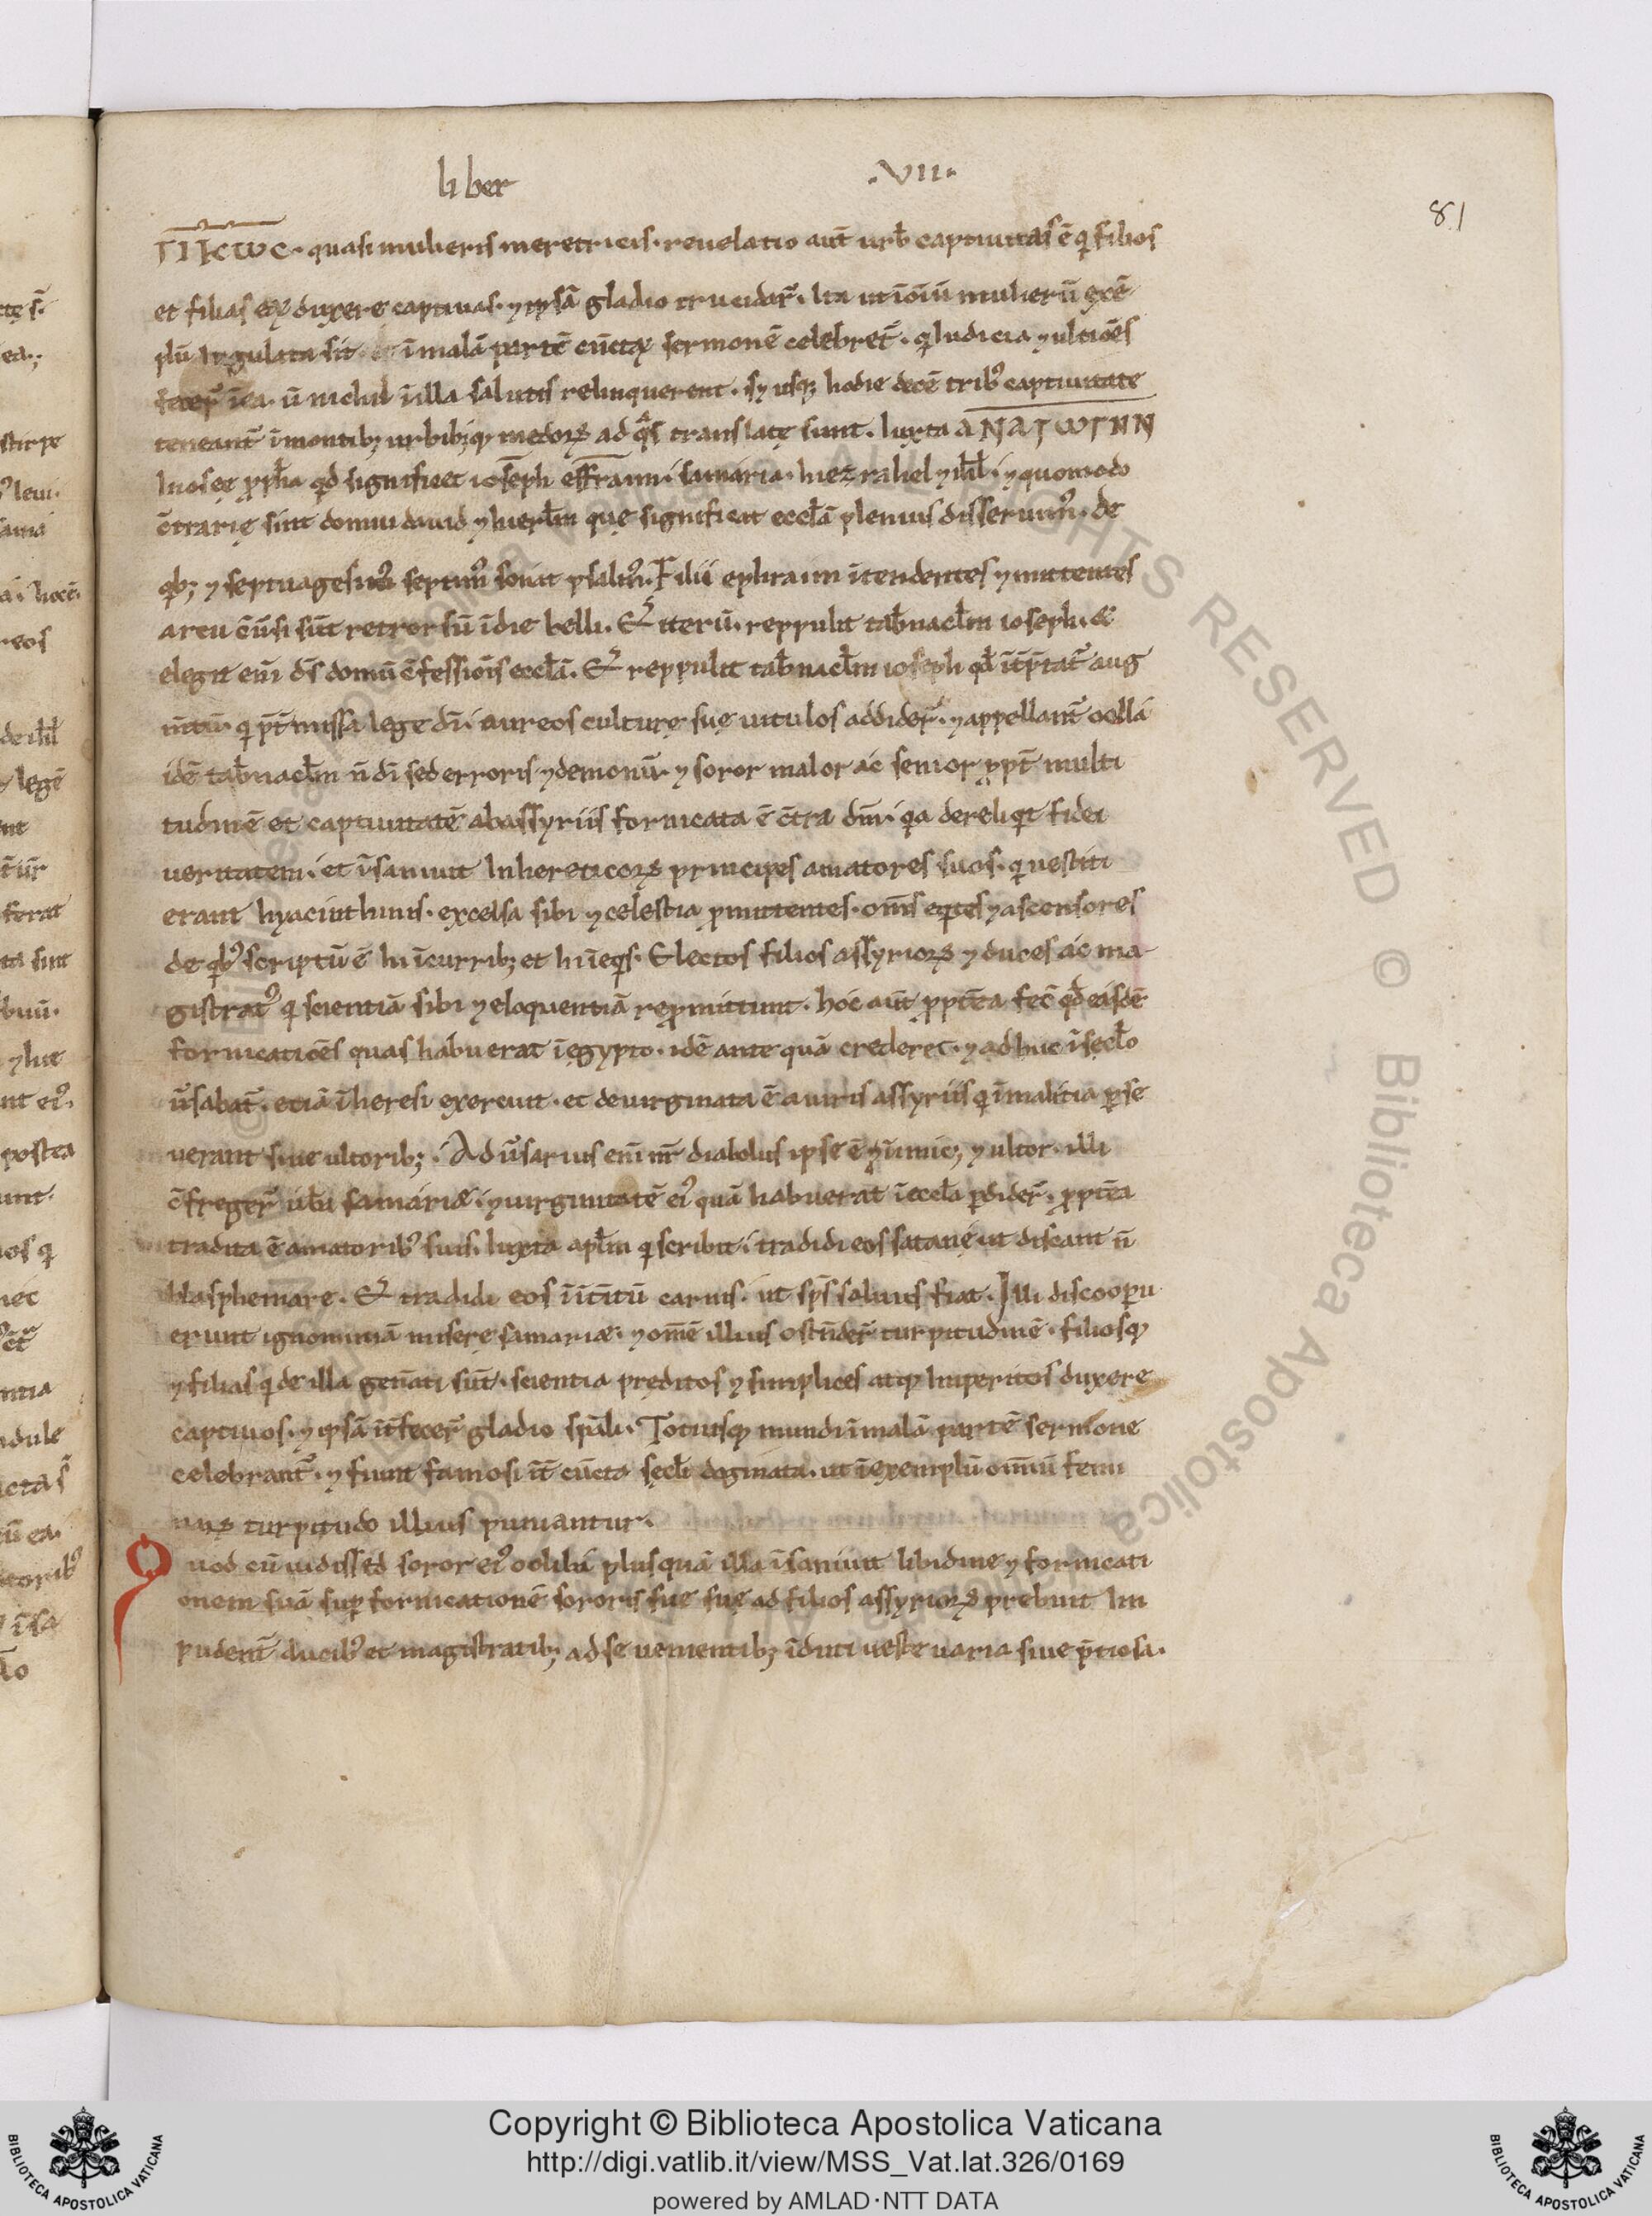 liber .VII.
81
ΓΙΚΩC · quasi mulieris meretricis · reuelatio aut̄ urb̄ captiuitas ē q filios
et filias eꝝ duxere captiuas · ⁊ ipsā gladio trucidar̄ · Ita ut ī oīū mulierū exē
plū iugulata sit · ī malā partē cūctoꝝ sermonē celebret̄ · q Iudicia ⁊ ultiōes
fecer̄ ī ea · ū nichil ī illa salutis relinquerent · sꝫ usqꝫ hodie decē tribꝰ captiuitate
teneant̄ ī montibꝫ urbibꝫqꝫ medoꝝ ad qͣs translatę sunt · Iuxta ΑΝΑΓΩΓΗΝ
In osee ꝓph̄a qd̄ significet ioseph effraim · samaria · hiezrahel ⁊ isr̄l · ⁊ quomodo
c̄trarię sint domui dauid ⁊ hierlm̄ quę significat eccl̄ā plenius disseruimꝰ · de
qbꝫ ⁊ septuagesimꝰ septimꝰ sonat psalmꝰ · Filii ephraim ītendentes ⁊ mittentes
arcu c̄ūsi sūt retrorsū ī die belli · Et iterū · reppulit tab̄nacl̄m ioseph · &
elegit eni d̄s domū c̄fessiōis eccl̄ā · Et reppulit tab̄nacl̄m ioseph qd̄ īt̄p̄tat̄ aug
m̄tū · q p̄t̄missa lege dī · aureos culturę suę uitulos addider̄ · ⁊ appellant̄ oolla
idē tab̄nacl̄m n̄ dī sed erroris ⁊ demonū · ⁊ soror malor ac senior ꝓpt̄ multi
tudinē et captiuitatē ab assyriis fornicata ē c̄tra dm̄ · qa dereliqt fidei
ueritatem · et īsaniuit In hereticoꝝ principes amatores suos · q uestiti
erant hyacinthinis · excelsa sibi ⁊ celestia ꝓmittentes · oms̄ eqtes ⁊ ascensores
de qbꝰ scriptū ē hi ī curribꝫ et hi ī eqs · Electos filios assyrioꝝ ⁊ duces ac ma
gistratꝰ q scientiā sibi ⁊ eloquentiā reꝓmittunt · hoc aut̄ ꝓpt̄ea fec̄ qd̄ easdē
fornicatiōes quas habuerat ī egypto · idē ante quā crederet · ⁊ adhuc ī sęcl̄o
ūsabat̄ · etiā ī heresi exercuit · et deuirginata ē a uiris assyriis q ī malitia ꝑse
uerant siue ultoribꝫ · Adūsarius eni nr̄ diabolus ipse ē ⁊ īimicꝫ ⁊ ultor · illi
c̄freger̄ ub̄a samariæ · ⁊ uirginitatē eiꝰ quā habuerat ī eccl̄a ꝑdider̄ · ꝓpt̄ea
tradita ē amatoribꝰ suis · Iuxta apl̄m q scribit · tradidi eos satanę ut discant n̄
blasphemare · Et tradidi eos ī īt̄itū carnis · ut sp̄s saluus fiat · Illi discoopu
erunt ignominiā miserę samariæ · ⁊ om̄ē illius ostēder̄ turpitudinē · filiosqꝫ
⁊ filias q de illa gen̄ati sūt · scientia prẹditos ⁊ simplices atqꝫ Imperitos duxere
captiuos · ⁊ ipsā īt̄fecer̄ gladio sp̄ali · Totiusqꝫ mundi ī malā partē sermone
celebrant̄ · ⁊ fiunt famosi īt̄ cūcta sęcl̄i dogmata · ut ī exemplū om̄iū femi
naꝝ turpitudo illius puniantur ·
Quod cū uidisset soror eiꝰ ooliba plusquā illa īsaniuit libidine ⁊ fornicati
onem suā suꝑ fornicationē sororis suę suę ad filios assyrioꝝ prebuit Im
pudent̄ ducibꝰ et magistratibꝫ ad se uenientibꝫ īduti ueste uaria siue p̄tiosa ·
Copyright © Biblioteca Apostolica Vaticana
http://digi.vatlib.it/view/MSS_Vat.lat.326/0169
powered by AMLAD·NTT DATA